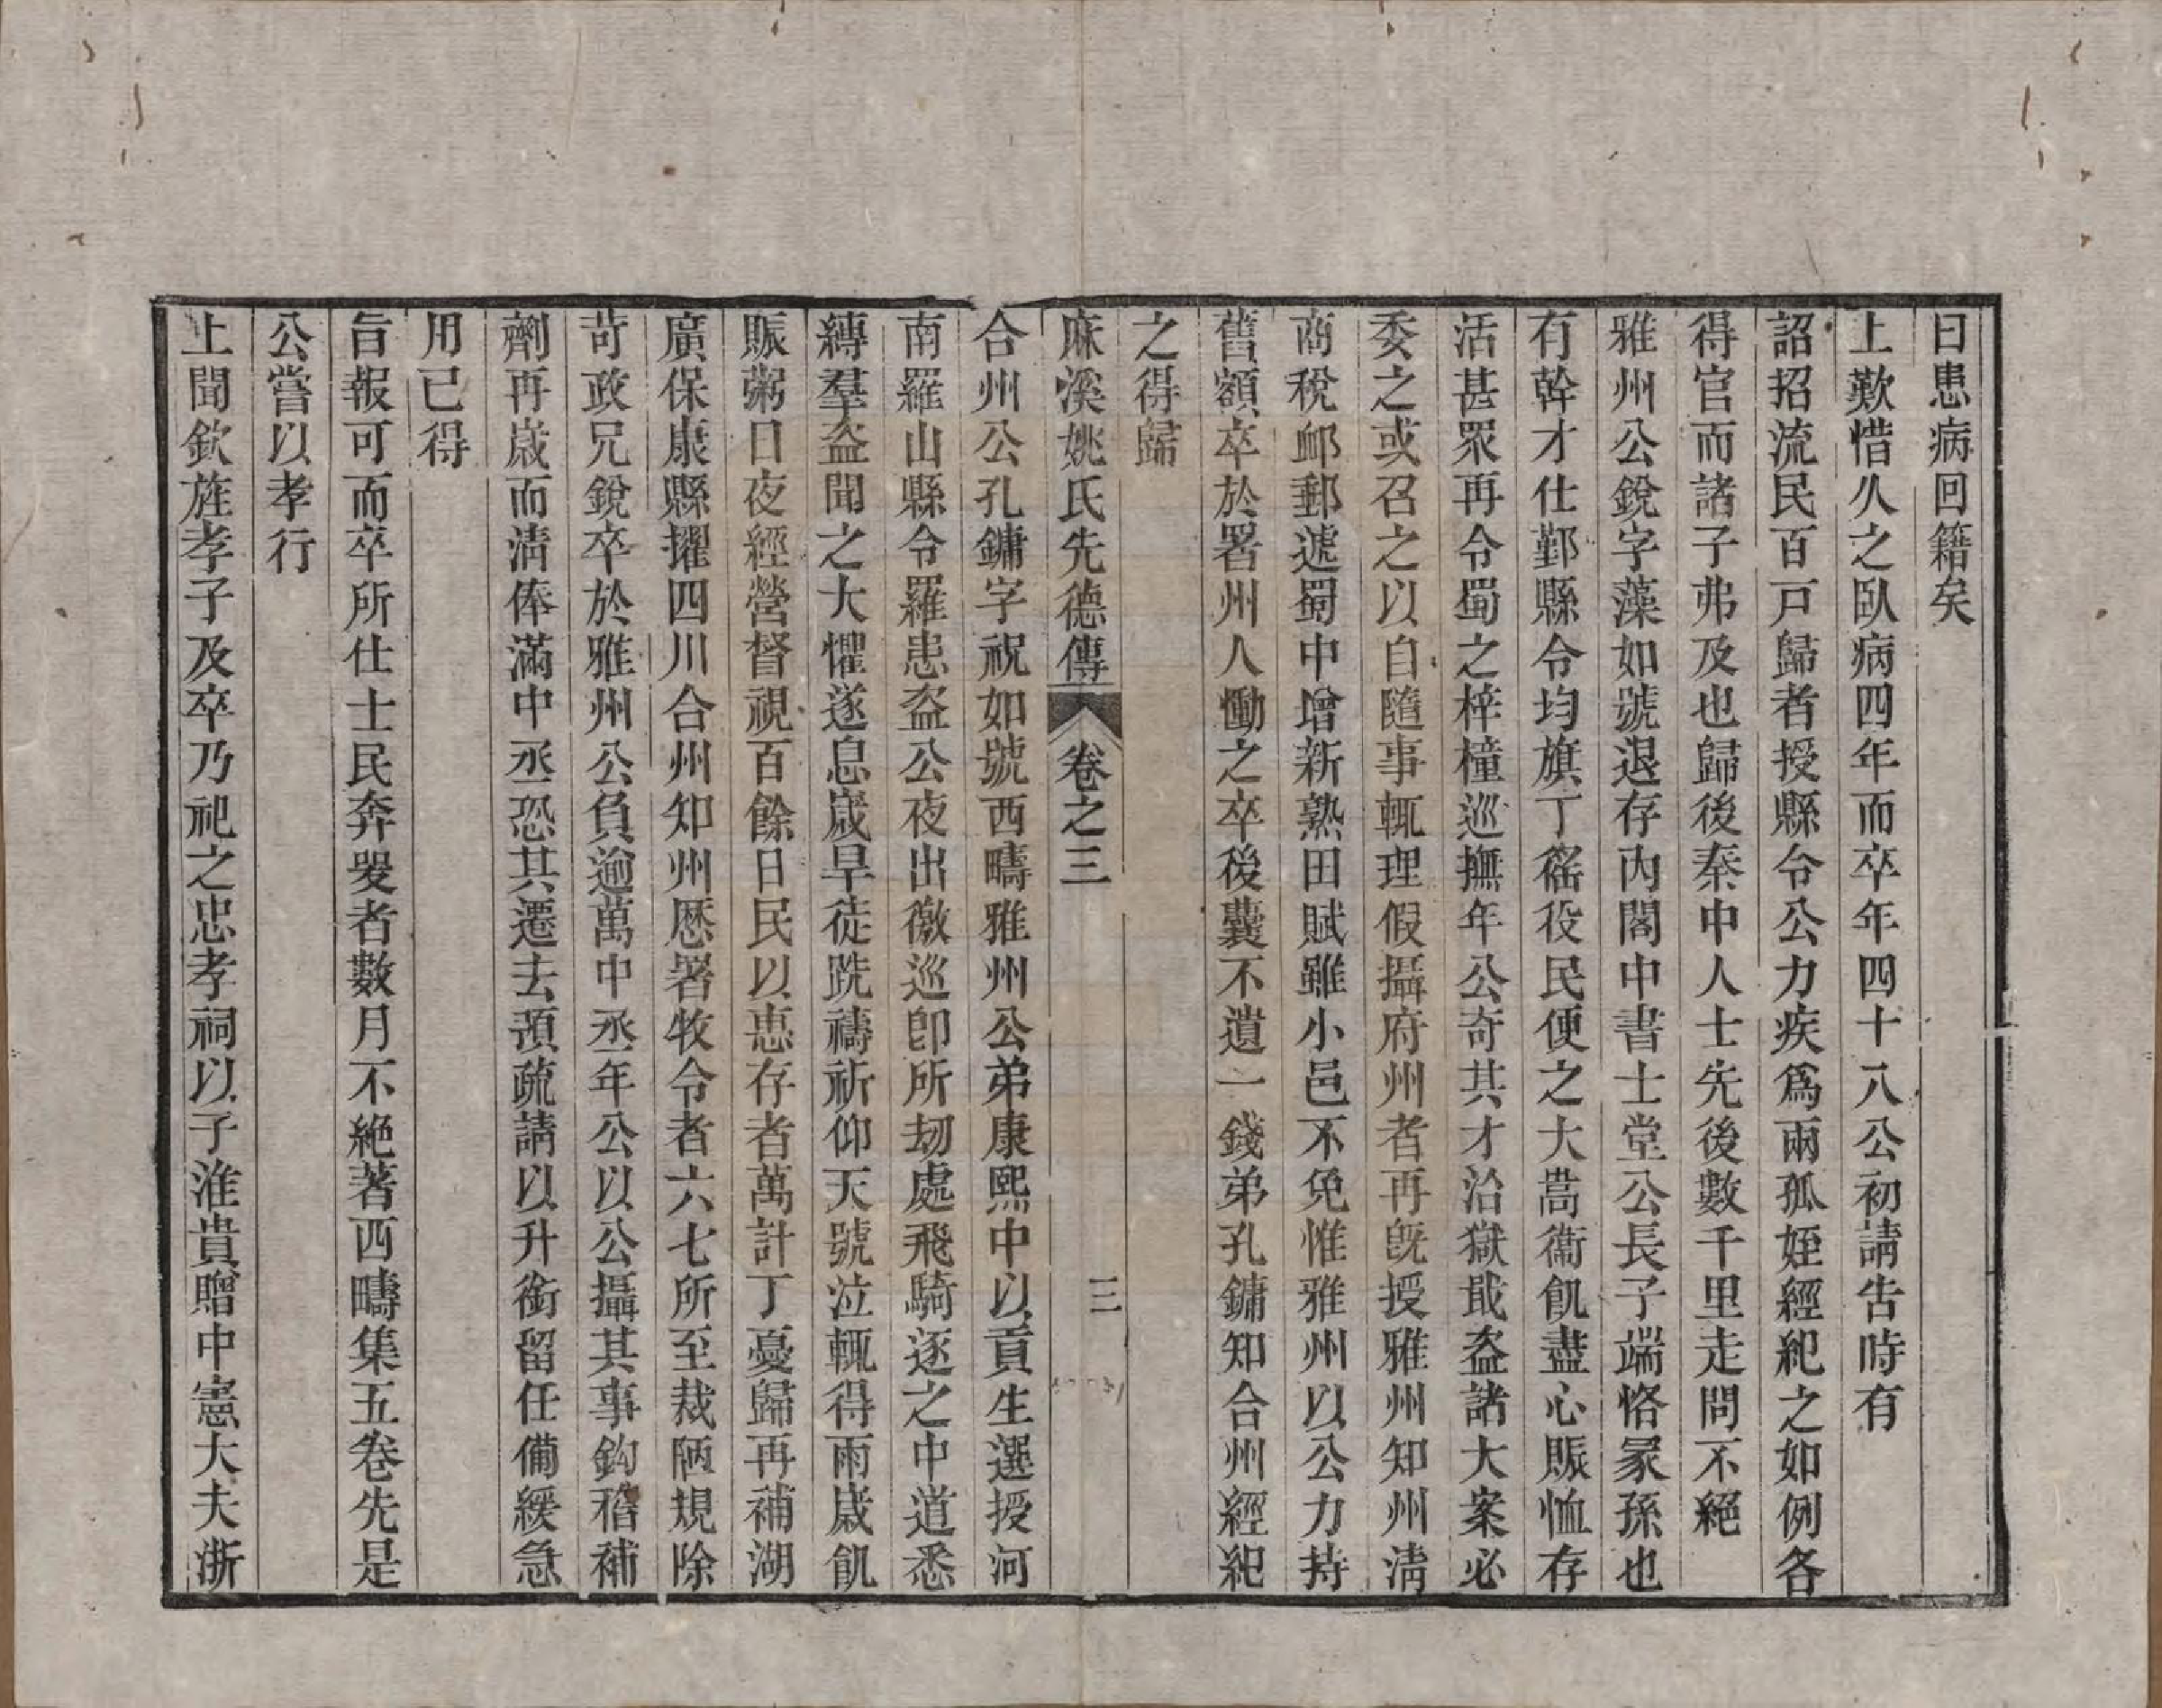 日患病回籍矣
上歎惜久之臥病四年而卒年四十八公初請告時有
詔招流民百戸歸者授縣令公力疾爲兩孤姪經紀之如例各
得官而諸子弗及也歸後秦中人士先後數千里走問不絕
雅州公銳字藻如號退存內閣中書士堂公長子端恪冢孫也
有幹才仕鄞縣令均旗丁徭役民便之大嵩衞飢盡心賑恤存
活甚眾再令蜀之梓橦巡撫年公奇其才治獄戢盜諸大案必
委之或召之以自隨事輒理假攝府州者再旣授雅州知州淸
商稅卹郵遞蜀中增新熟田賦雖小邑不免惟雅州以公力持
舊額卒於署州人慟之卒後囊不遺一錢弟孔鏞知合州經紀
之得歸
麻溪姚氏先德傳 卷之三 三
合州公孔鏞字祝如號西疇雅州公弟康熙中以貢生選授河
南羅山縣令羅患盜公夜出徼巡卽所刼處飛騎逐之中道悉
縛羣盜聞之大懼遂息歲旱徒跣禱祈仰天號泣輒得雨歲飢
賑粥日夜經營督視百餘日民以惠存者萬計丁憂歸再補湖
廣保康縣擢四川合州知州歷署牧令者六七所至裁陋規除
苛政兄銳卒於雅州公負逾萬中丞年公以公攝其事鈎稽補
劑再歲而淸俸滿中丞恐其遷去預疏請以升銜留任備緩急
用已得
旨報可而卒所仕士民奔哭者數月不絕著西疇集五卷先是
公嘗以孝行
上聞欽旌孝子及卒乃祀之忠孝祠以子淮貴贈中憲大夫浙